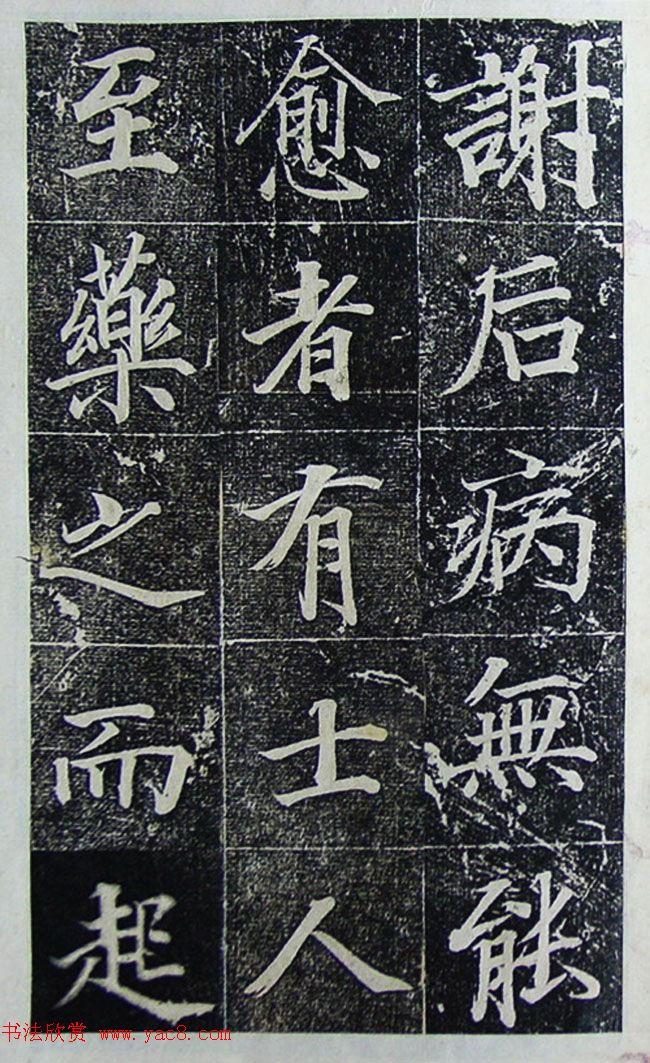 謝后病無能
愈者有士人
至藥之而起
书法欣赏 www.yac8.com